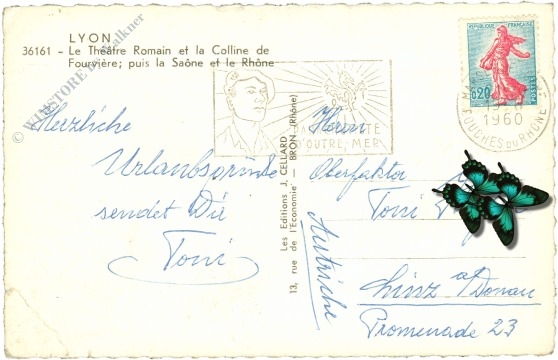 LYON
36161 - Le Théâtre Romain et la Colline de
Fourvière; puis la Saône et le Rhône
© WINSTORE Falkner
RÉPUBLIQUE FRANÇAISE
0,20
POSTES
1960
BOUCHES DU RHONE
OUTRE MER
Les Editions J. CELLARD
13, rue de l'Economie - BRON (Rhône)
Herzliche
Urlaubsgrüsse
sendet Dir
Toni
Herrn
Oberfaktor
Toni
Linz a/Donau
Promenade 23
Autriche